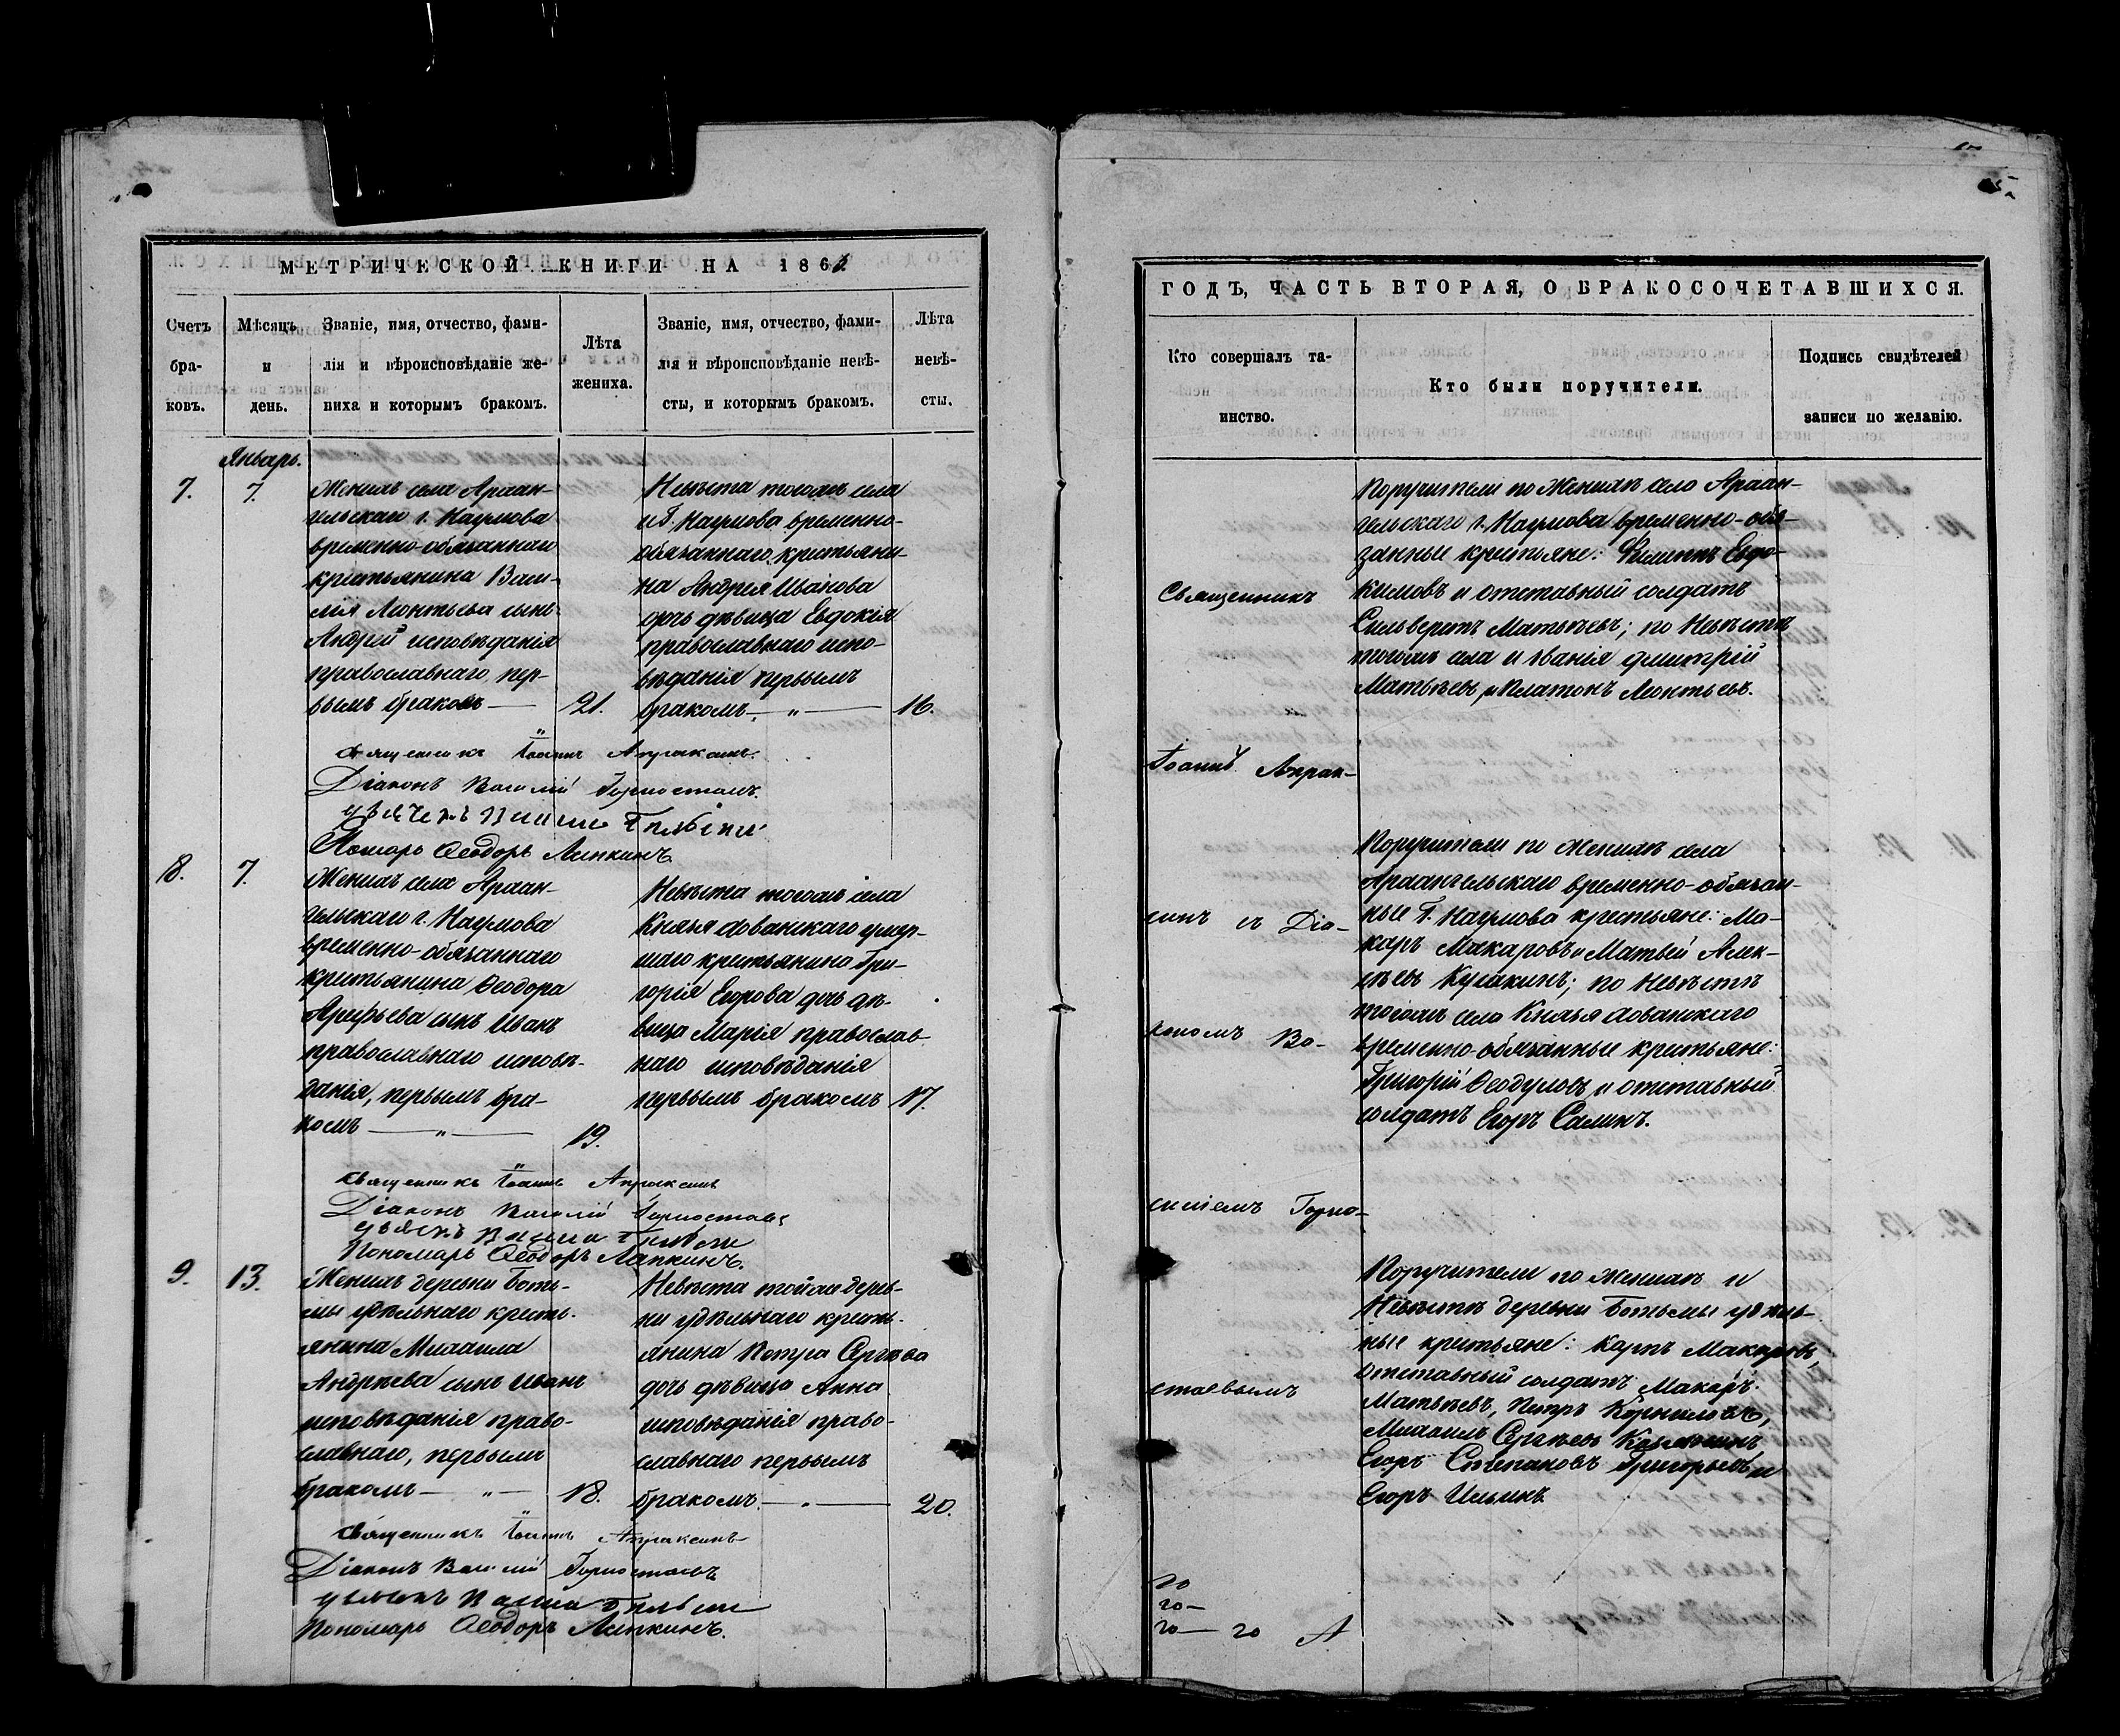 МЕТРИЧЕСКОЙ КНИГИ НА 186
Счетъ бра- ковъ.
Мѣсяцъ и день.
Званіе, имя, отчество, фами-
лія и вѣроисповѣданіе же-
ниха и которымъ бракомъ.
Лѣта жениха.
Званіе, имя, отчество, фами-
лія и вѣроисповѣданіе невѣ-
сты, и которымъ бракомъ.
Лѣта невѣ- сты.
Январь.
7. 7.
Женихъ села Архан-
гельскаго г. Наумова
временно-обязаннаго
крестьянина Васи-
лія Леонтьева сынъ
Андрей исповѣданія
православнаго, пер-
вымъ бракомъ — 21.
Невѣста тогожъ села
и г. Наумова временно-
обязаннаго крестьяни-
на Андрея Иванова
дочь дѣвица Евдокія
православнаго испо-
вѣданія первымъ
бракомъ. — „ — 16.
Священникъ Іоаннъ Апраксинъ.
Діаконъ Василій Горностаевъ.
Пономарь Ѳеодоръ Лапкинъ.
8. 7.
Женихъ села Архан-
гельскаго г. Наумова
временно-обязаннаго
крестьянина Ѳеодора
Арефьева сынъ Иванъ
православнаго исповѣ-
данія, первымъ бра-
комъ — „ — 19.
Невѣста тогожъ села
Князя Хованскаго умер-
шаго крестьянина Гри-
горія Егорова дочь дѣ-
вица Марія православ-
наго исповѣданія
первымъ бракомъ 17.
Священникъ Іоаннъ Апраксинъ
Діаконъ Василій Горностаевъ
Пономарь Ѳеодоръ Лапкинъ.
9. 13.
Женихъ деревни Боть-
мы удѣльнаго кресть-
янина Михаила
Андреева сынъ Иванъ
исповѣданія право-
славнаго, первымъ
бракомъ — „ — 18.
Невѣста тойже дерев-
ни удѣльнаго кресть-
янина Петра Сергѣева
дочь дѣвица Анна
исповѣданія право-
славнаго первымъ
бракомъ. — „ — 20.
Священникъ Іоаннъ Апраксинъ
Діаконъ Василій Горностаевъ
Пономарь Ѳеодоръ Лапкинъ.
ГОДЪ, ЧАСТЬ ВТОРАЯ, О БРАКОСОЧЕТАВШИХСЯ.
Кто совершалъ та-
инство.
Кто были поручители.
Подпись свидѣтелей
записи по желанію.
Священникъ
Іоаннъ Апрак-
синъ съ Діа-
кономъ Ва-
силіемъ Горно-
стаевымъ
Поручители по Женихѣ села Архан-
гельскаго г. Наумова временно-обя-
занные крестьяне: Евдо-
кимовъ и отставный солдатъ
Сильверстъ Матвѣевъ; по Невѣстѣ
тогожъ села и званія Дмитрій
Матвѣевъ, и Платонъ Леонтьевъ.
Поручители по Женихѣ села
Архангельскаго временно-обязан-
ные г. Наумова крестьяне: Ма-
каръ Макаровъ и Матвѣй Алек-
сѣевъ Кулакинъ; по Невѣстѣ
тогожъ села Князя Хованскаго
временно-обязанные крестьяне:
Григорій Ѳеодуловъ и отставный
солдатъ Егоръ Салинъ.
Поручители по Женихѣ и
Невѣстѣ деревни Ботьмы удѣль-
ные крестьяне: Карпъ Макаровъ,
отставный солдатъ Макаръ
Матвѣевъ, Петръ Корниловъ,
Михаилъ Сергѣевъ
Егоръ Степановъ Григорьевъ и
Егоръ Ильинъ.